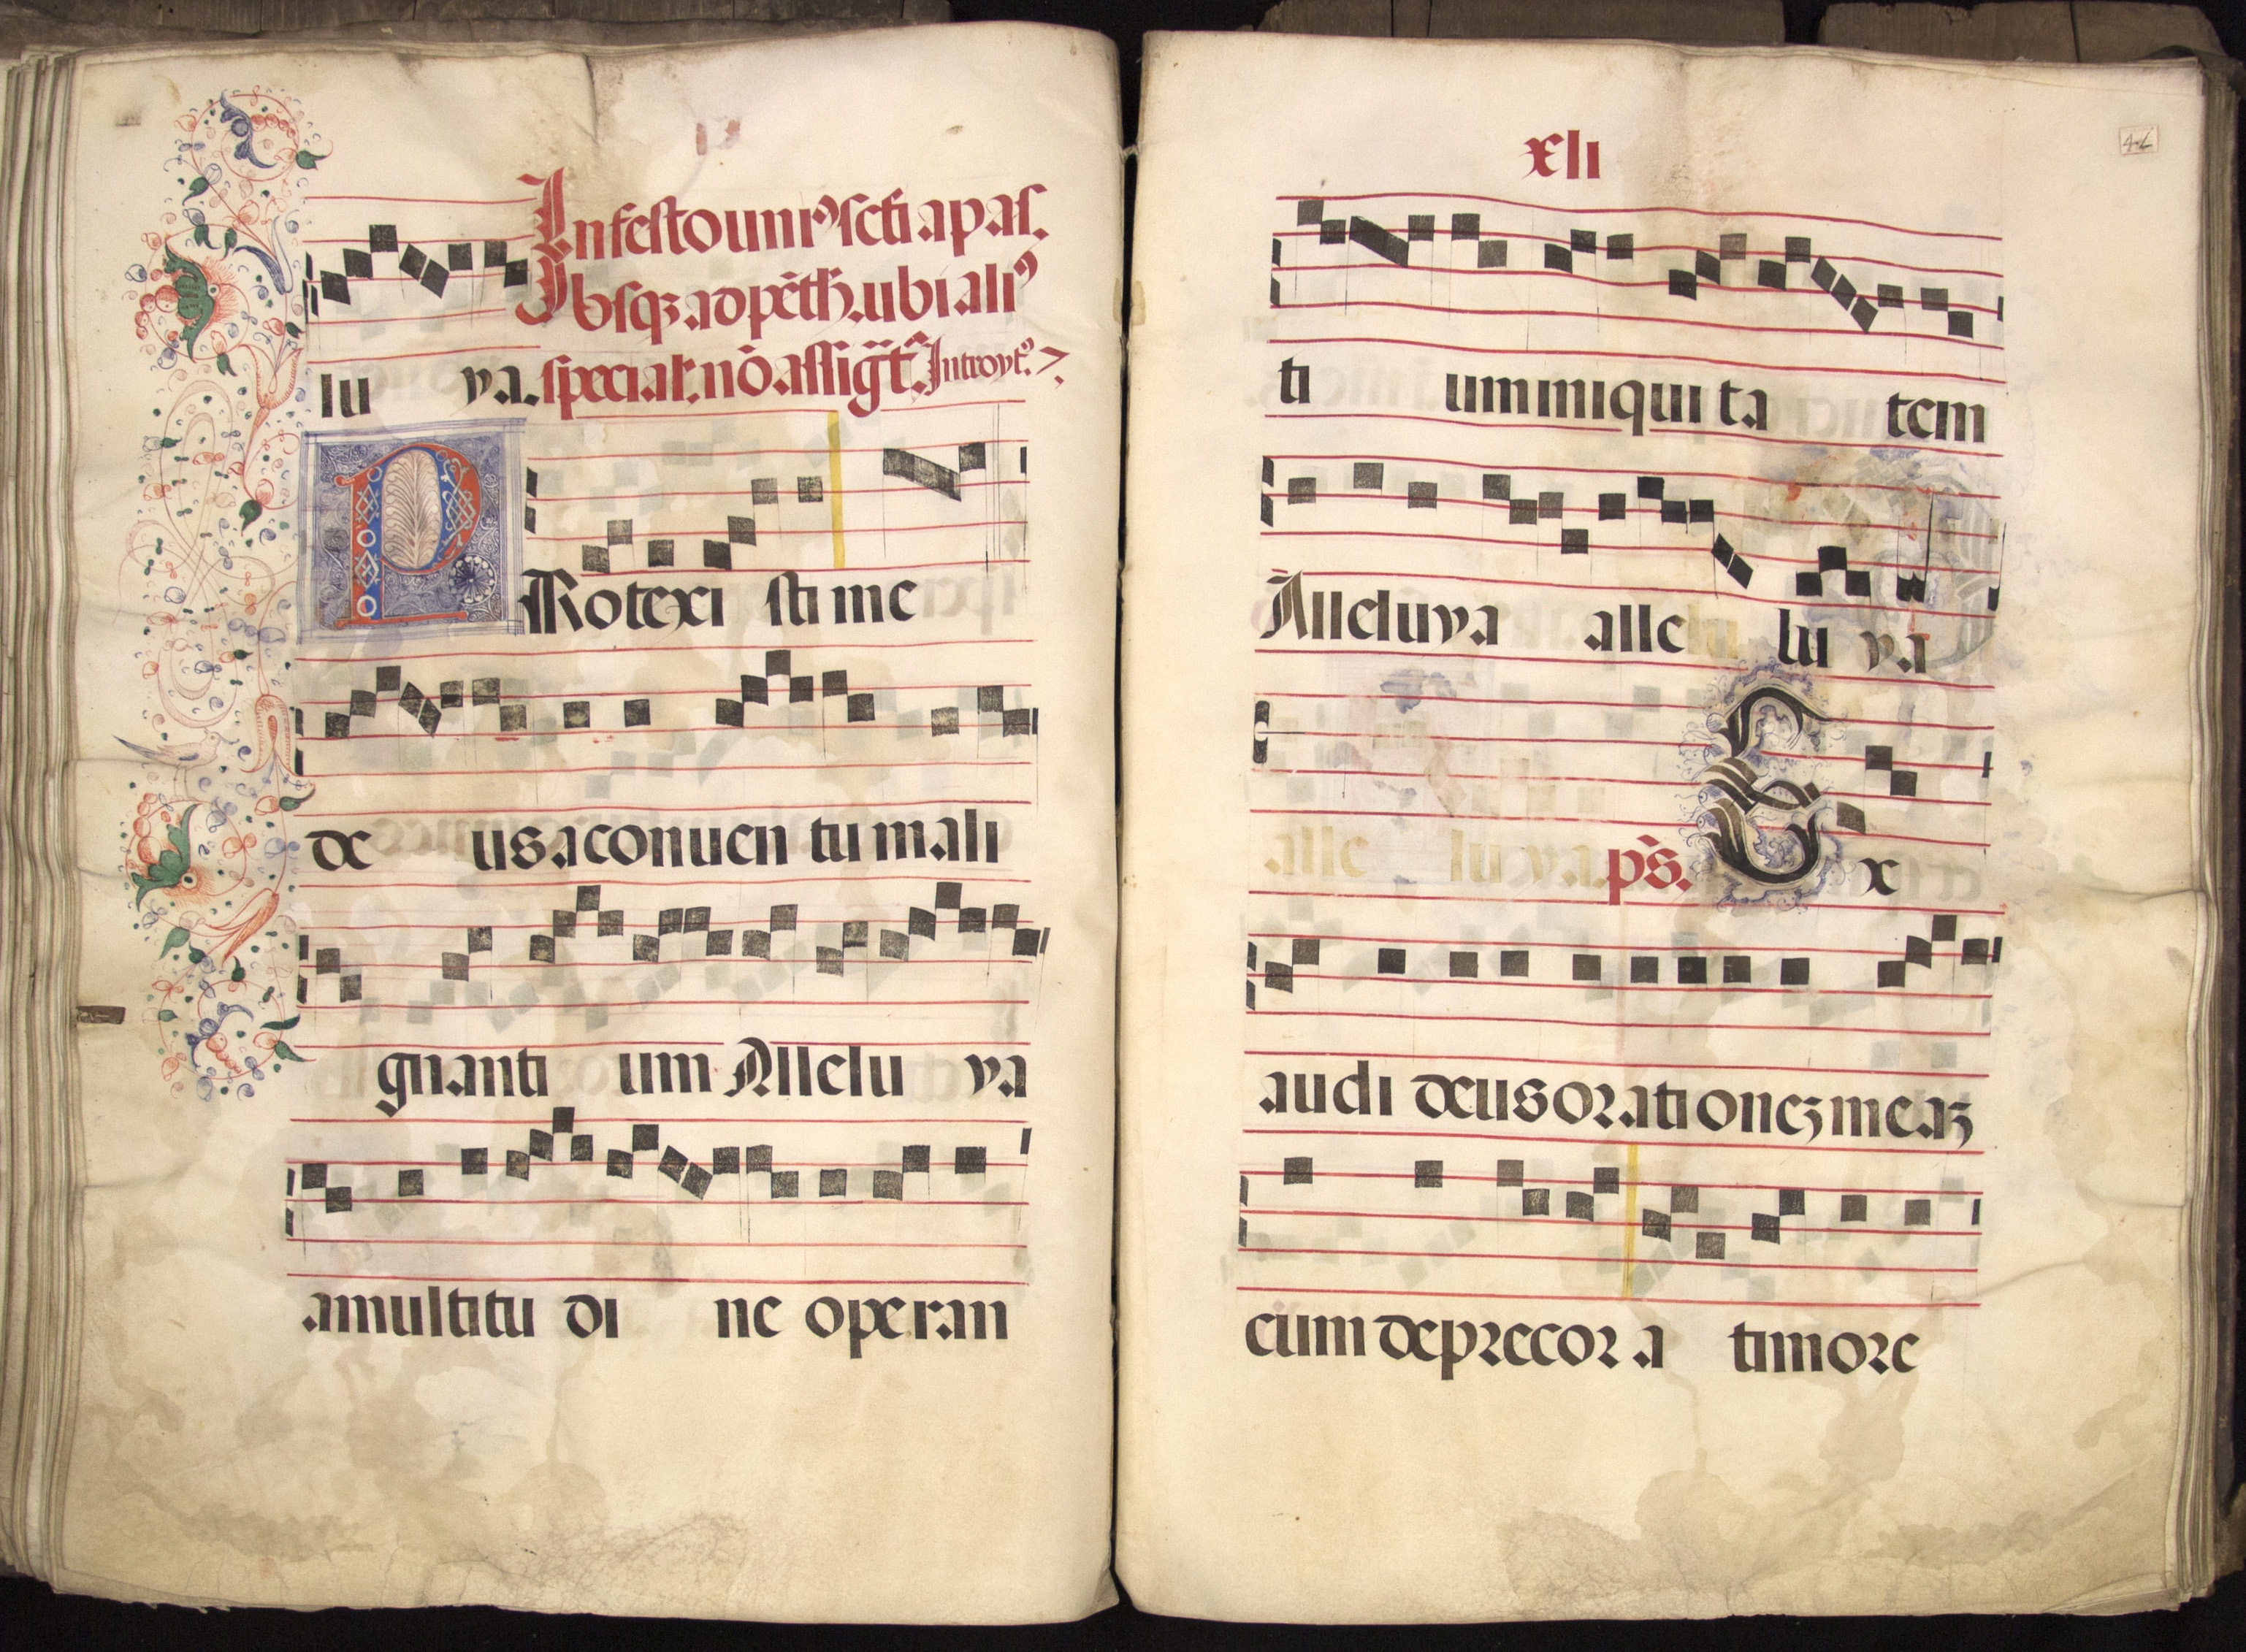 In festo uniꝰ scti a pas.
Vsqz ad pēth. ubi aliꝰ
lu ya. special. nō assig̃t. Introytꝰ.
PRotexi sti me
de us a conuen tu mali
gnanti um Allelu ya
a multitu di ne operan
xli
ti um iniqui ta tem
Alleluya alle lu lu ya
alle lu ya. ps. Ex
audi deus orationez meaz
cum deprecor a timore